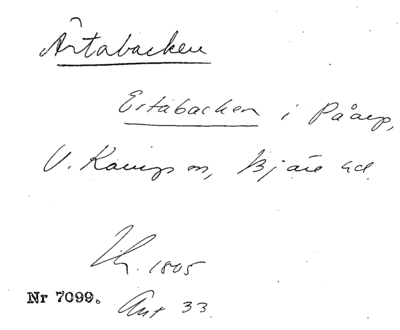 Ärtabacken
Ertabacken i Påarp,
V. Karup sn, Bjäre hd.
1805
Nr 7099. Ant 33